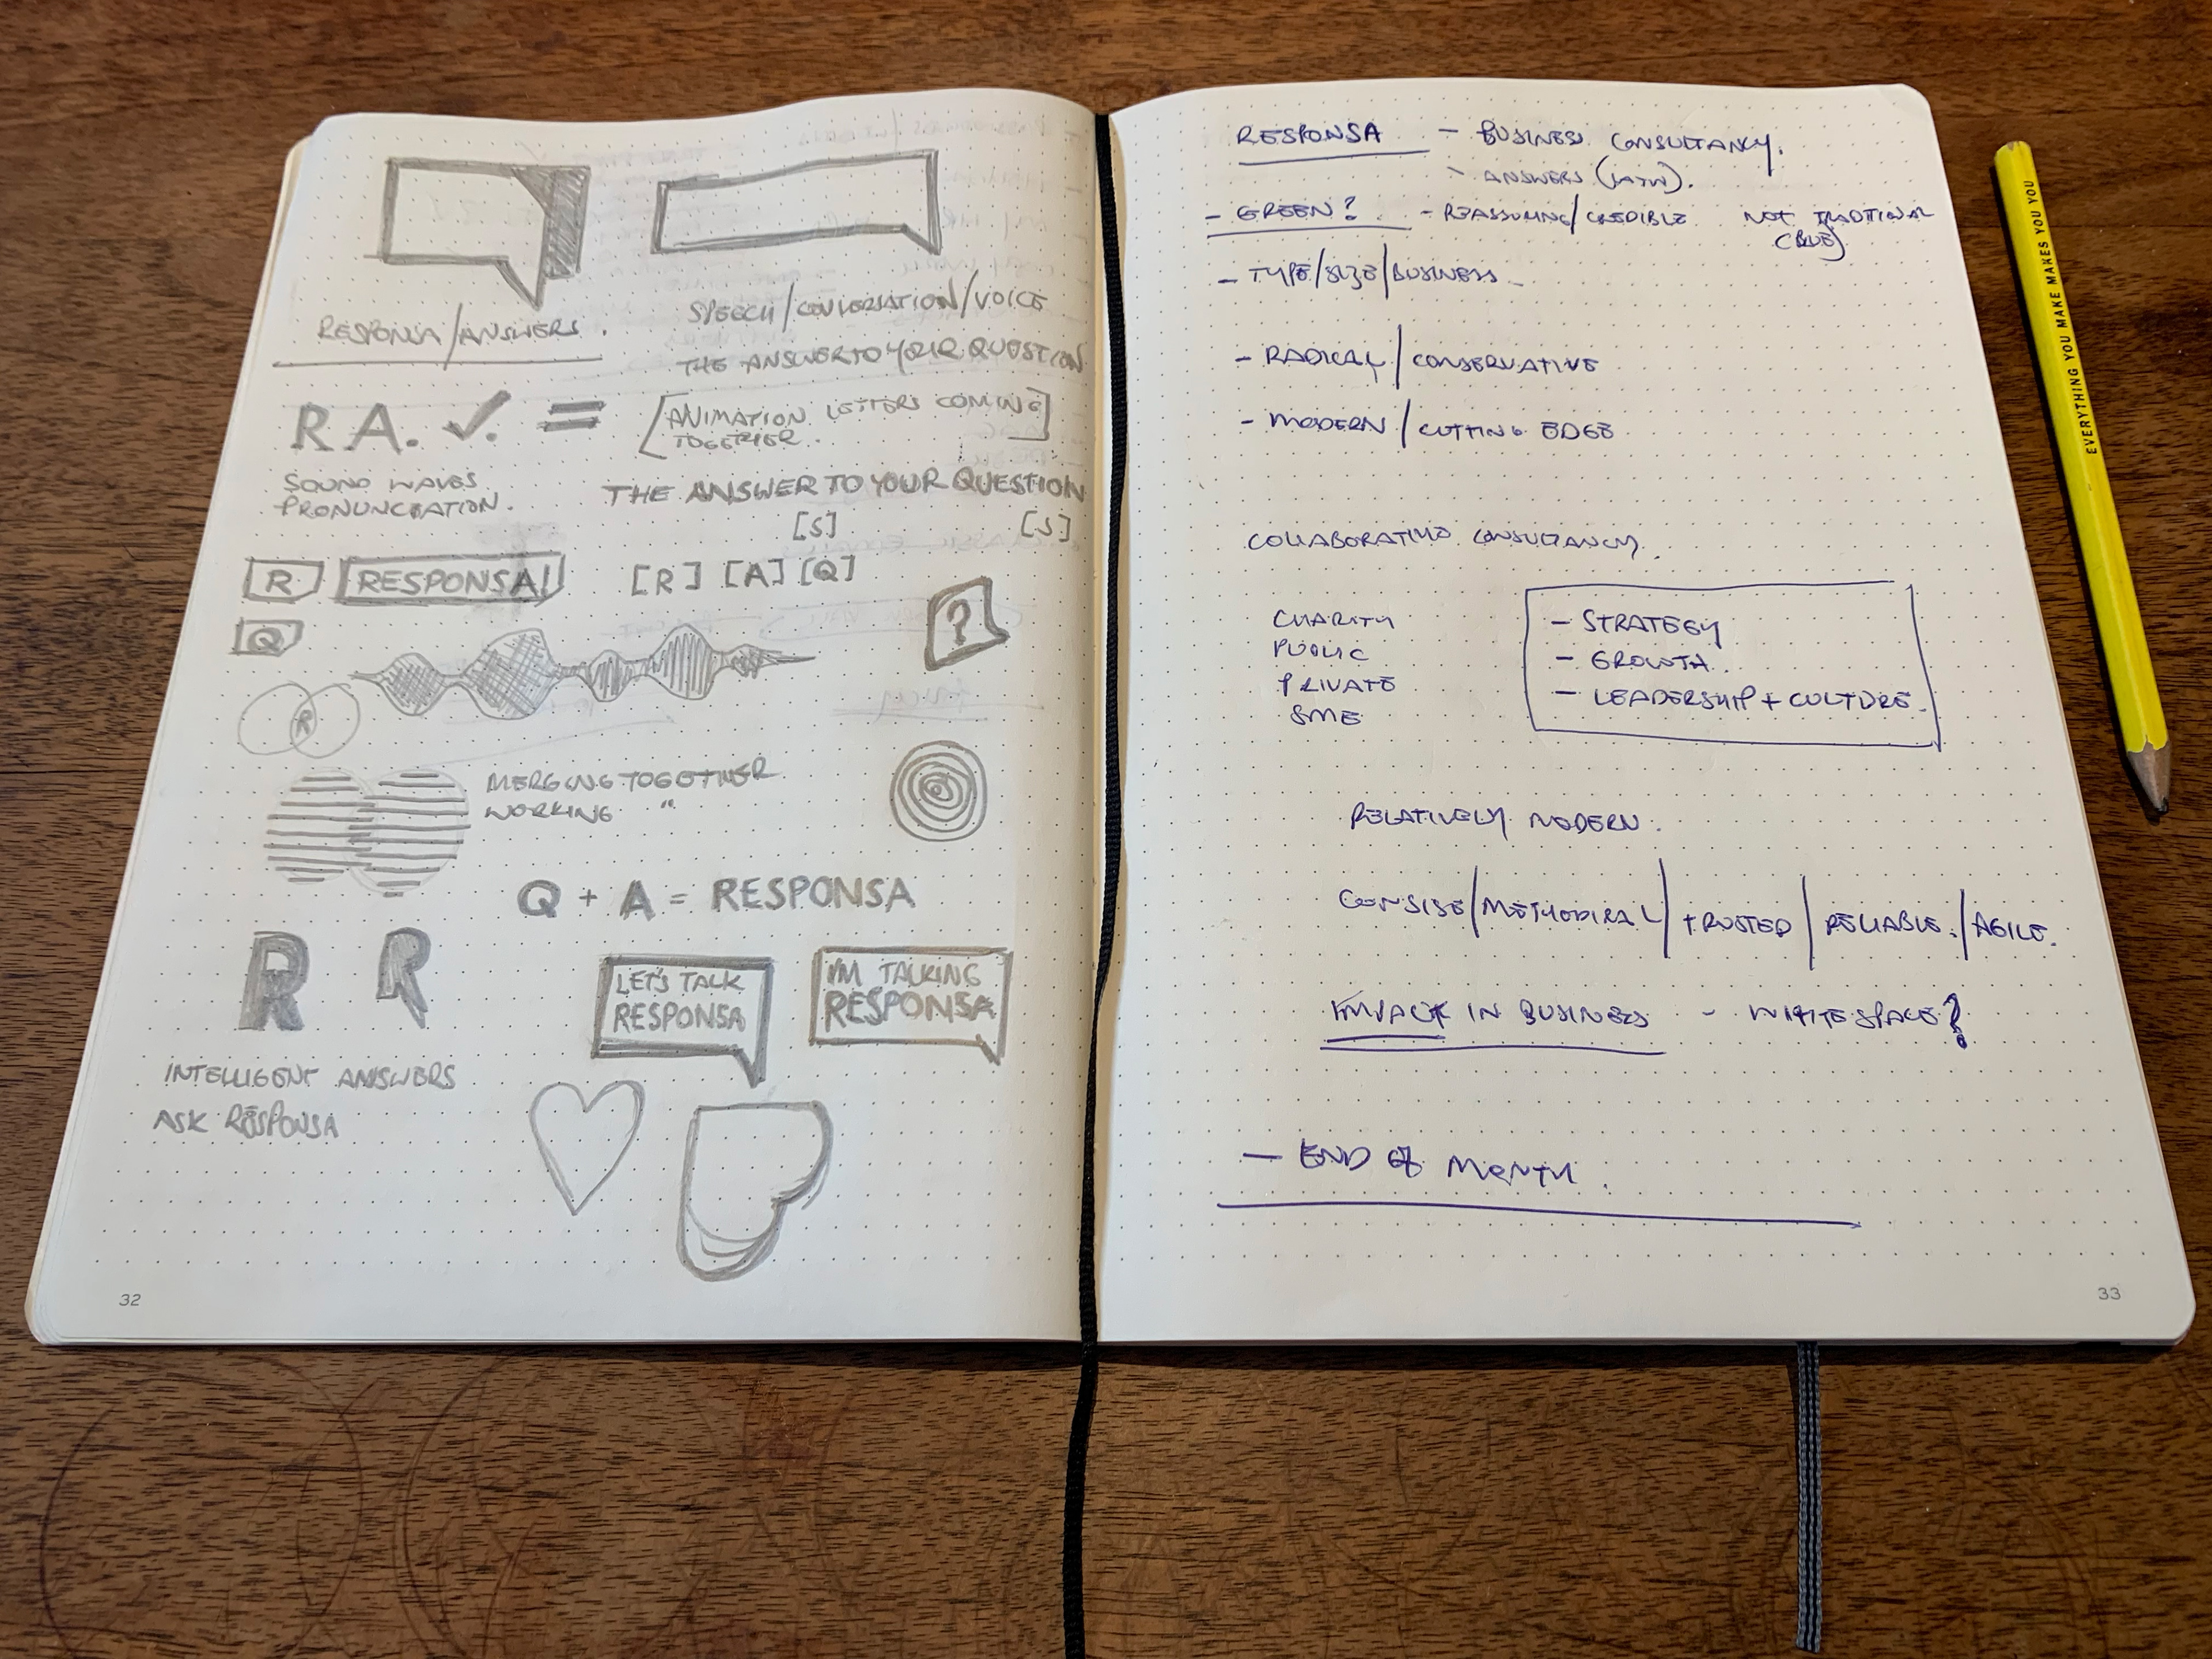 RESPONSA/ANSWERS.
SPEECH/CONVERSATION/VOICE
THE ANSWER TO YOUR QUESTION
R A. =
[ANIMATION LETTERS COMING
TOGETHER.]
SOUND WAVES
PRONUNCIATION.
THE ANSWER TO YOUR QUESTION
[S] [S]
R RESPONSA [R] [A] [Q]
Q
?
R
MERGING TOGETHER
WORKING "
Q + A = RESPONSA
R R
LET'S TALK
RESPONSA
I'M TALKING
RESPONSA
INTELLIGENT ANSWERS
ASK RESPONSA
32
RESPONSA - BUSINESS CONSULTANCY.
- ANSWERS (LATIN).
- GREEN? - REASSURING/CREDIBLE NOT TRADITIONAL
(BLUE)
- TYPE/SIZE/BUSINESS
- RADICAL/CONSERVATIVE
- MODERN/CUTTING EDGE
COLLABORATIVE CONSULTANCY.
CHARITY
PUBLIC
PRIVATE
SME
- STRATEGY
- GROWTH
- LEADERSHIP + CULTURE.
RELATIVELY MODERN.
CONSISE/METHODICAL/TRUSTED/RELIABLE./AGILE.
IMPACT IN BUSINESS - WHITE SPACE?
- END OF MONTH.
33
EVERYTHING YOU MAKE MAKES YOU YOU